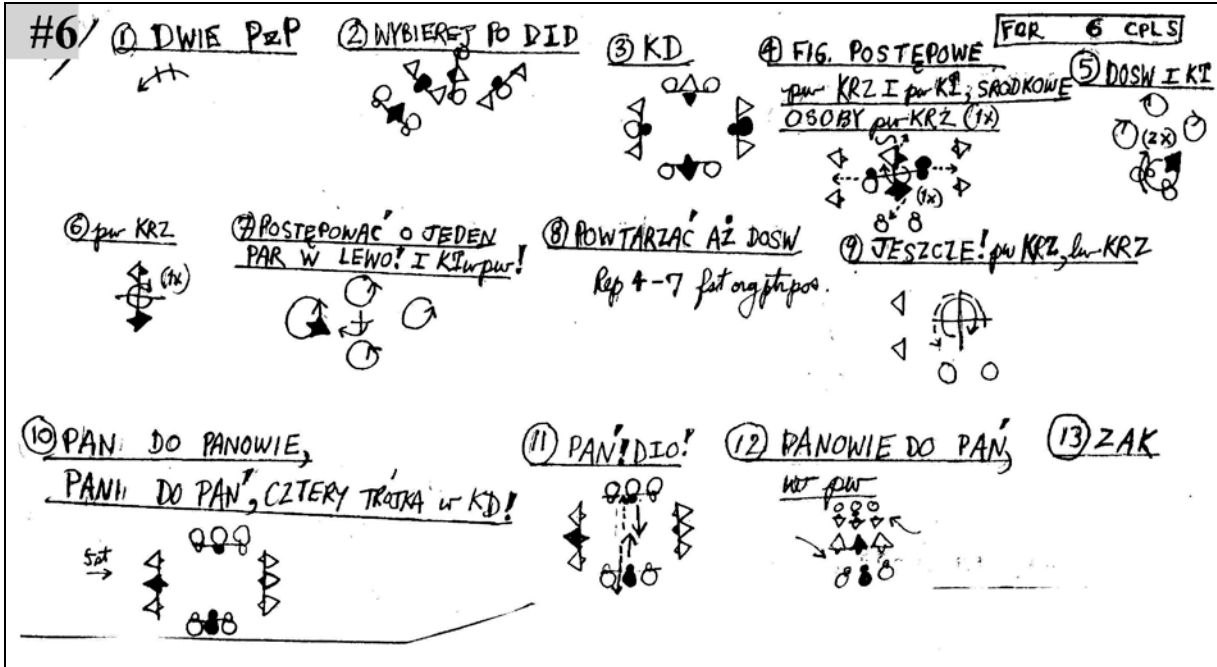 #6/
① DWIE PzP
② WYBIEREJ PO DID
③ KD
④ FIG. POSTĘPOWE
pw KRZ I pw KT, ŚRODKOWE
OSOBY pw KRZ (1x)
(1x)
FOR 6 CPLS
⑤ DOSW I KT
(2x)
⑥ pw KRZ
(1x)
⑦ POSTĘPOWAĆ O JEDEN
PAR W LEWO! I KT w pw!
⑧ POWTARZAĆ AŻ DOSW
Rep 4-7
⑨ JESZCZE! pw KRZ, lw KRZ
⑩ PANI DO PANOWIE,
PANII DO PAŃ, CZTERY TRÓJKA w KD!
5pt
⑪ PAŃ! DIO!
⑫ PANOWIE DO PAŃ,
pw
⑬ ZAK